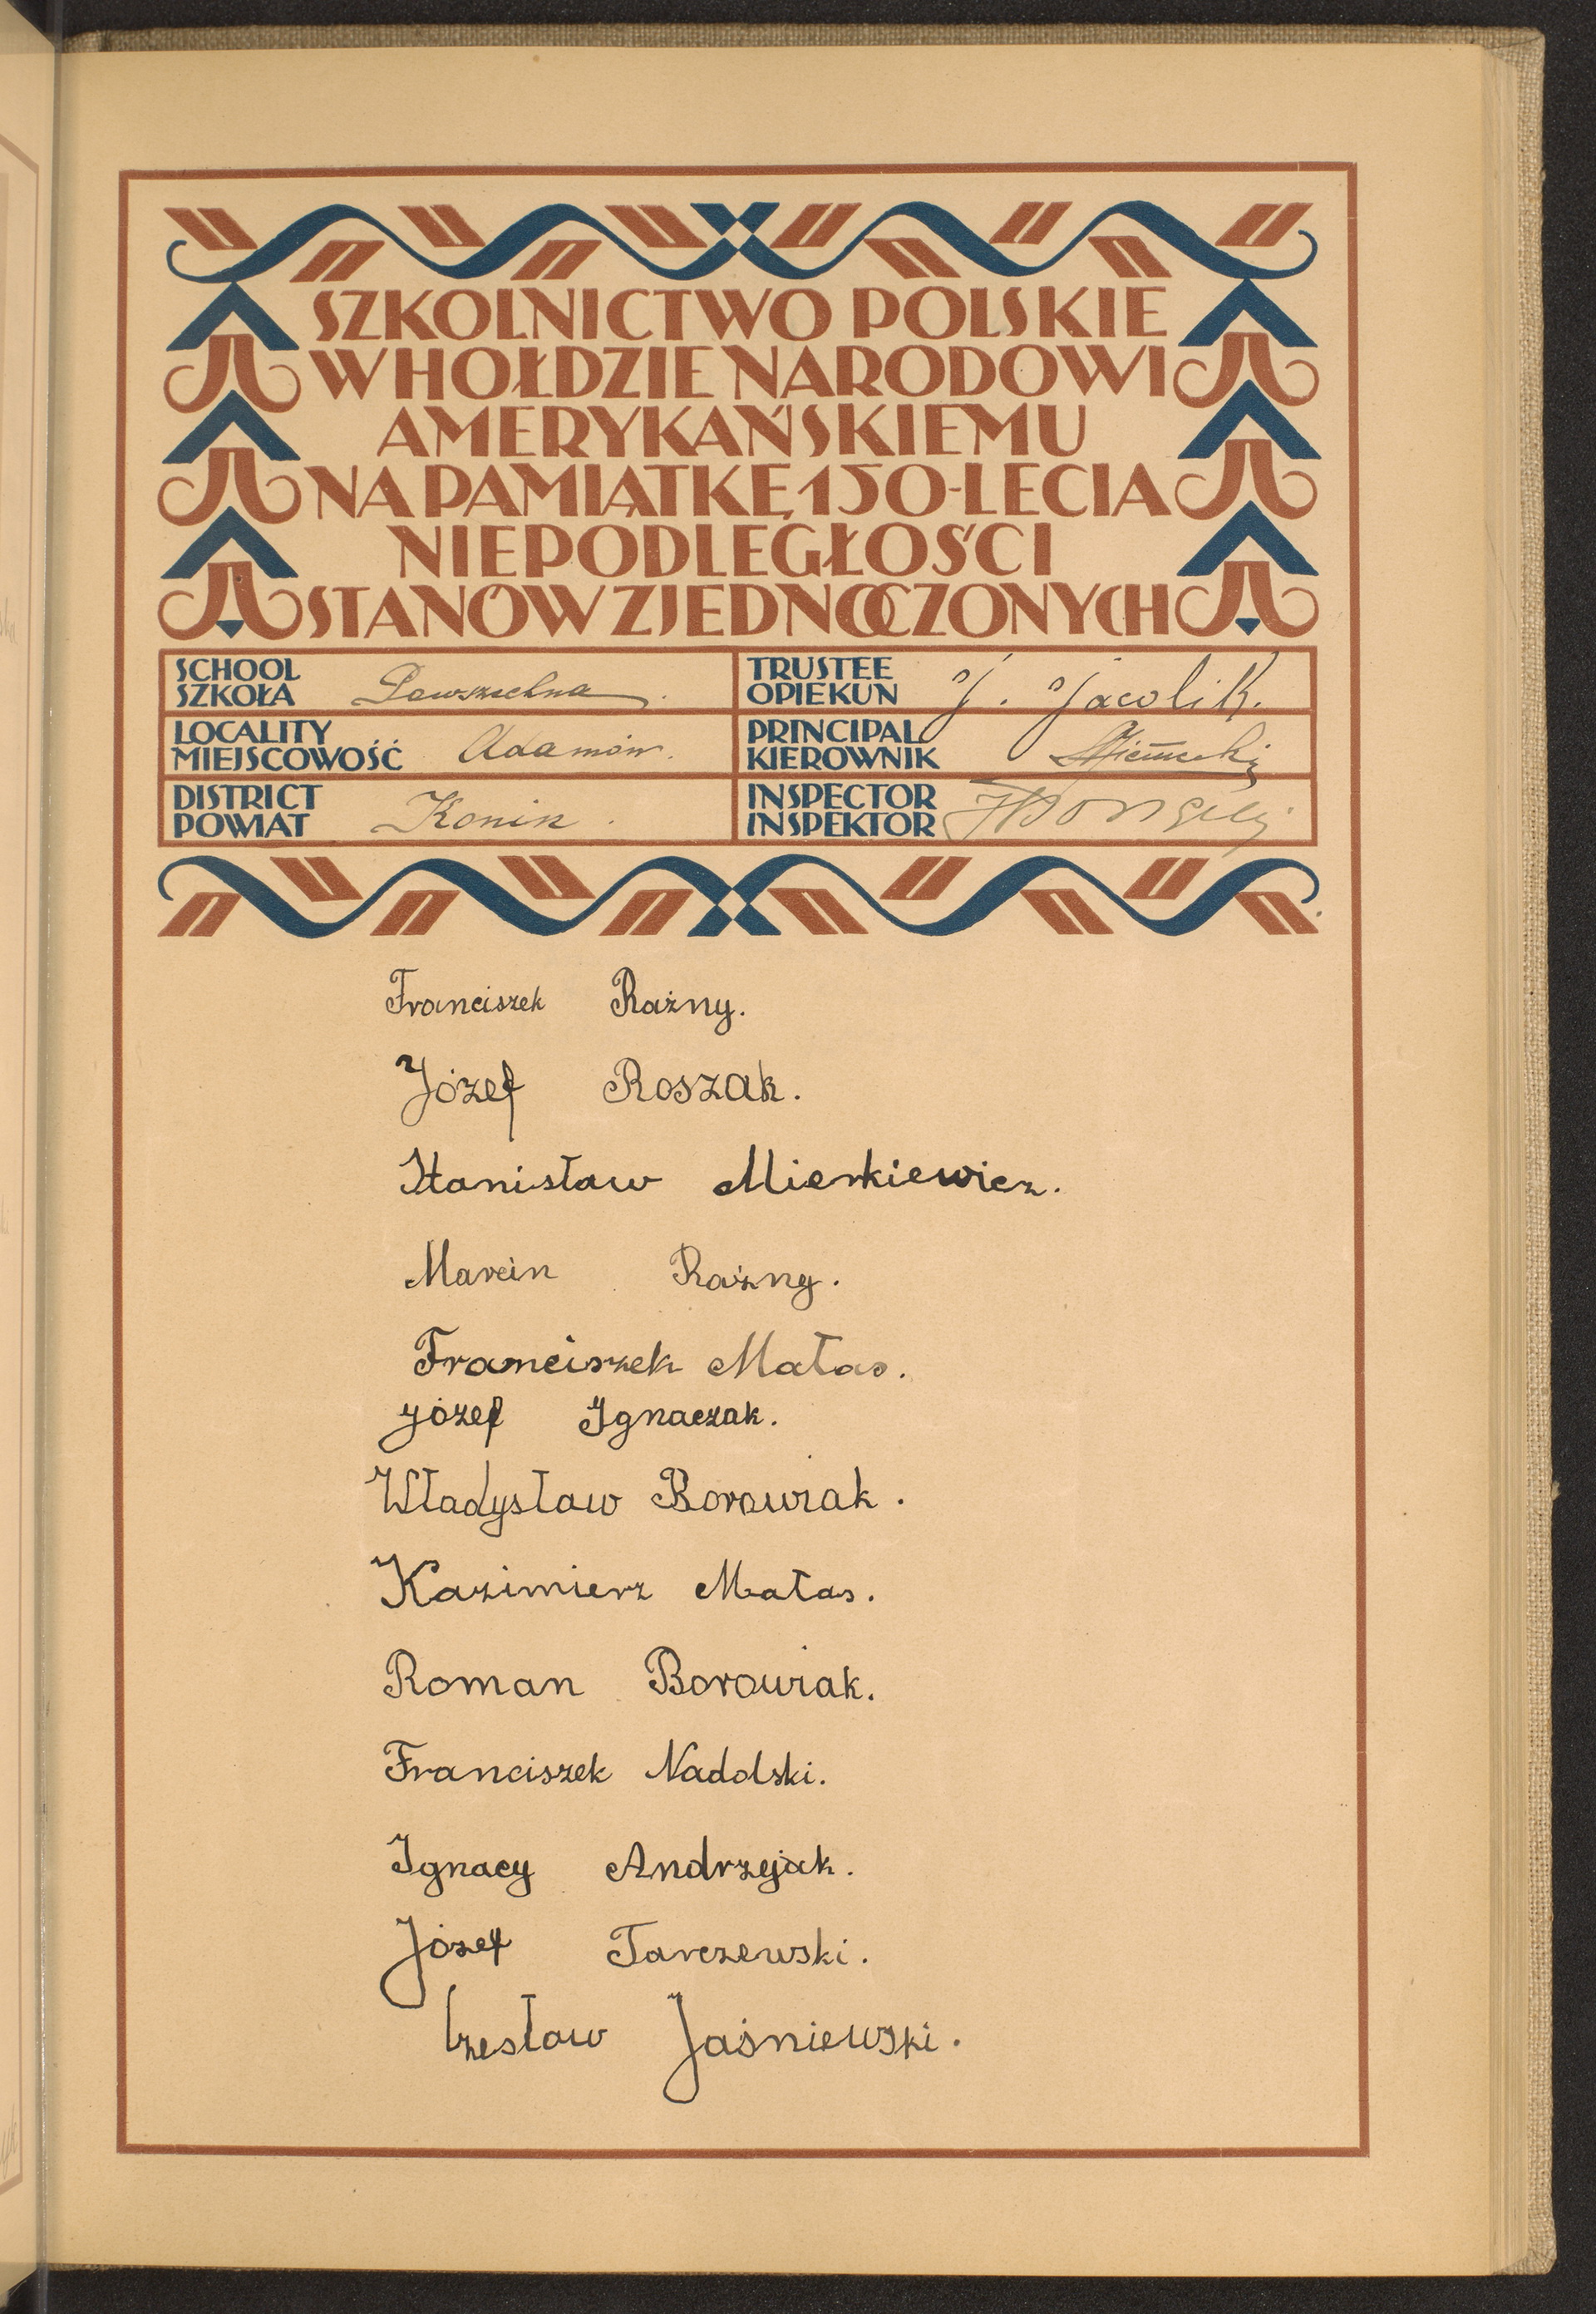 SZKOLNICTWO POLSKIE
W HOŁDZIE NARODOWI
AMERYKAŃSKIEMU
NA PAMIĄTKĘ 150-LECIA
NIEPODLEGŁOŚCI
STANÓW ZJEDNOCZONYCH
SCHOOL
SZKOŁA Powszechna.
TRUSTEE
OPIEKUN J. Jacolik.
LOCALITY
MIEJSCOWOŚĆ Adamów.
PRINCIPAL
KIEROWNIK
DISTRICT
POWIAT Konin.
INSPECTOR
INSPEKTOR
Franciszek Rażny.
Józef Roszak.
Stanisław Mierkiewicz.
Marcin Rażny.
Franciszek Matas.
Józef Ignaczak.
Władysław Borowiak.
Kazimierz Matas.
Roman Borowiak.
Franciszek Nadolski.
Ignacy Andrzejak.
Józef Tarczewski.
Czesław Jaśniewski.